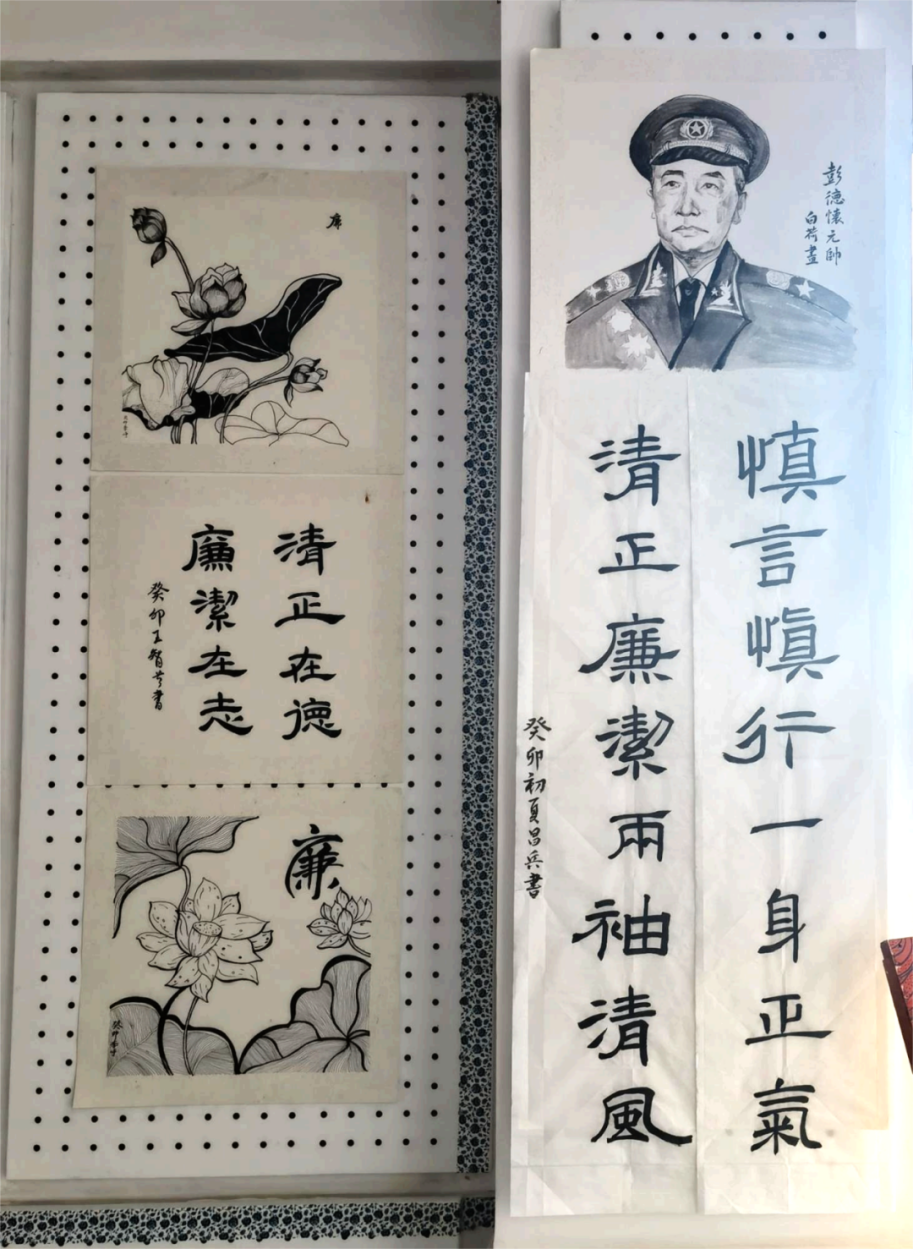 廉
清正在德
廉潔在志
癸卯王智芳書
廉
癸卯
彭德懷元帥
白荷畫
慎言慎行一身正氣
清正廉潔兩袖清風
癸卯初夏昌兵書